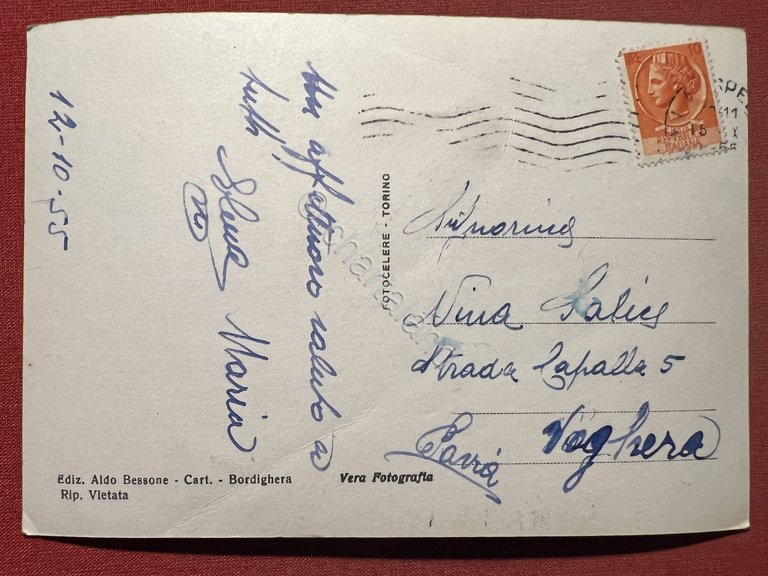 12-10-55
Un affettuoso saluto a
tutti,
Elena Maria
FOTOCELERE - TORINO
LIRE 10
ITALIANA
Signorina
Nina Salice
Strada Capalla 5
Voghera
(Pavia)
Ediz. Aldo Bessone - Cart. - Bordighera
Rip. Vietata
Vera Fotografia